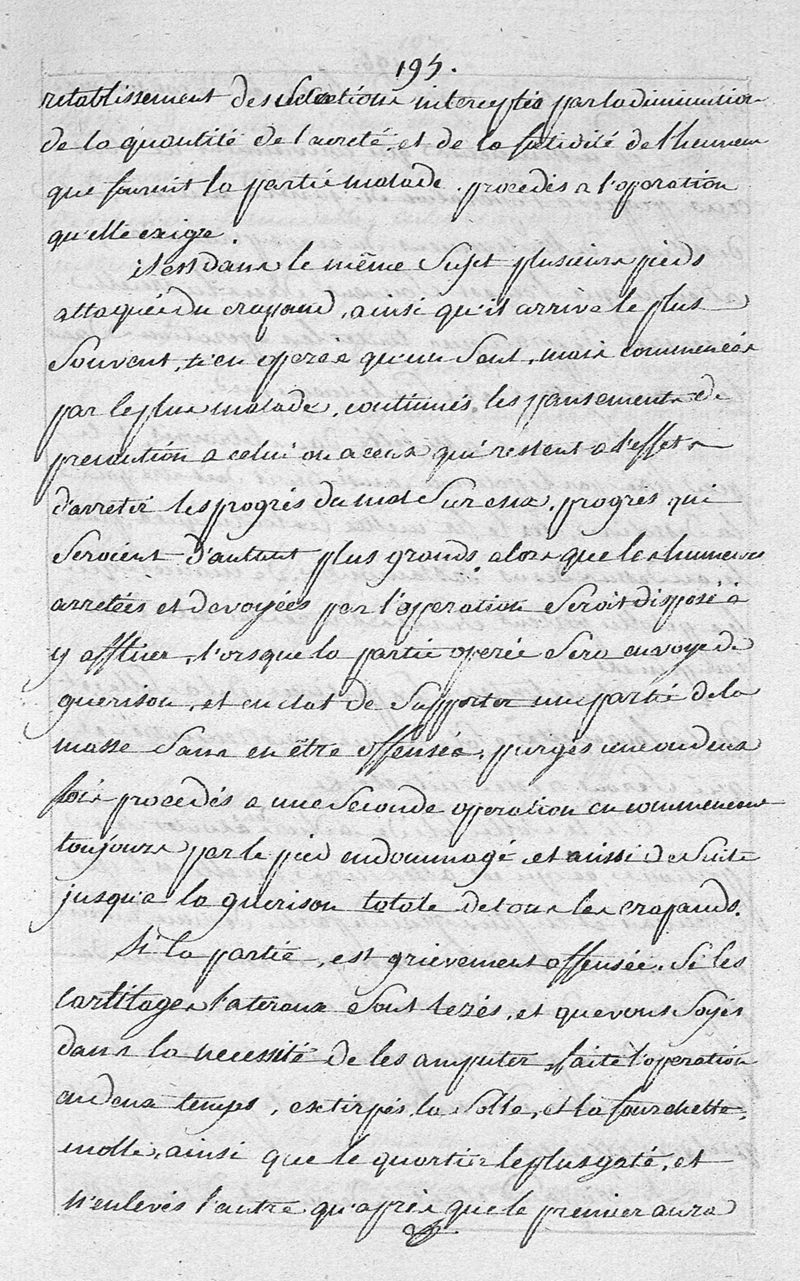 195.
retablissement des secretions interceptés par la diminution
de la quantité de l'acreté, et de la fetidité de l'humeur
que fournit la partie malade. procedés a l'operation
qu'elle exige.
s'il est dans le même Sujet plusieurs pieds
attaqués du crapaud, ainsi qu'il arrive le plus
Souvent, n'en operes qu'un Seul, mais commencés
par le plus malade, continués les pansements de
precaution a celui ou a ceux qui restent a l'effet
d'arreter les progrés du mal Sur eux, progrés qui
Seroient d'autant plus grands alors que les humeurs
arretées et devoyées par l'operation Seroit disposé a
y affluer, l'orsque la partie operée Sera en voye de
guerison, et en etat de Supporter un partie de la
masse Sans en être offensée, purgés une ou deux
fois procedés a une Seconde operation en commencant
toujours par le pied endommagé et aussi de Suite
jusqu'a la guerison totale de tous les crapauds.
Si la partie, est grievement offensée, Si les
cartilages lateraux Sont lezés, et que vous Soyés
dans la necessité de les amputer faite l'operation
en deux temps, extirpés la Solle, et la fourchette
molle, ainsi que le quartier le plus gaté, et
n'enlevés l'autre qu'aprés que le premier aura